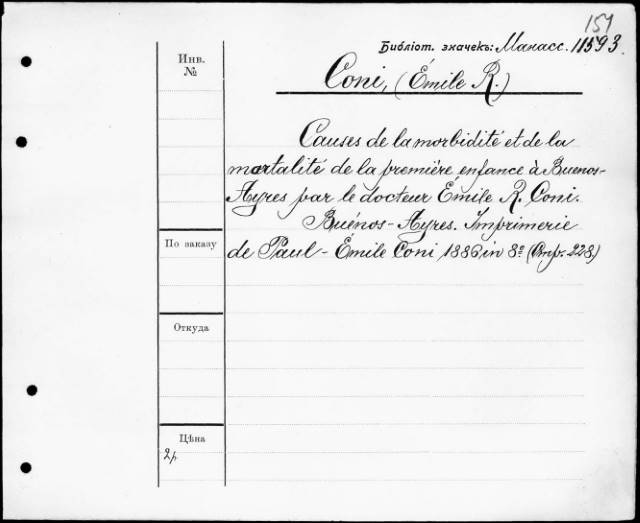 151
Библіот. значекъ: Манасс. 11593.
Инв.
№
Coni, (Émile R.)
Causes de la morbidité et de la
mortalité de la première enfance à Buenos-
Ayres par le docteur Émile R. Coni.
Buénos-Ayres. Imprimerie
По заказу
de Paul-Émile Coni 1886 in 8º (Стр. 228)
Откуда
Цѣна
2р